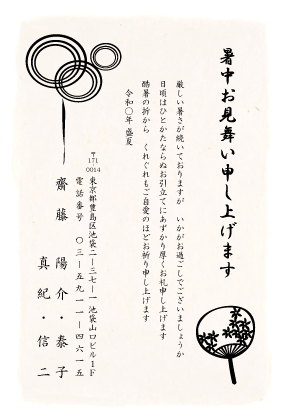 暑中お見舞い申し上げます
厳しい暑さが続いておりますが　いかがお過ごしでございましょうか
日頃はひとかたならぬお引立てにあずかり厚くお礼申し上げます
酷暑の折から　くれぐれもご自愛のほどお祈り申し上げます
令和〇年 盛夏
〒171-0014
東京都豊島区池袋二―三七―一 池袋山口ビル１Ｆ
電話番号　〇三―五九一一―四六一五
齋藤　陽介・泰子
真紀・信二